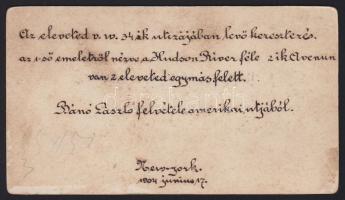 Az eleveted v. w. 34 ik utczájában levő keresztezés.
az 1-ső emeletről nézve a Hudson River féle 2 ik Avenun
van 2 eleveted egymás felett.
Bánó László felvétele amerikai utjából.
New-york.
1904 junius 17.